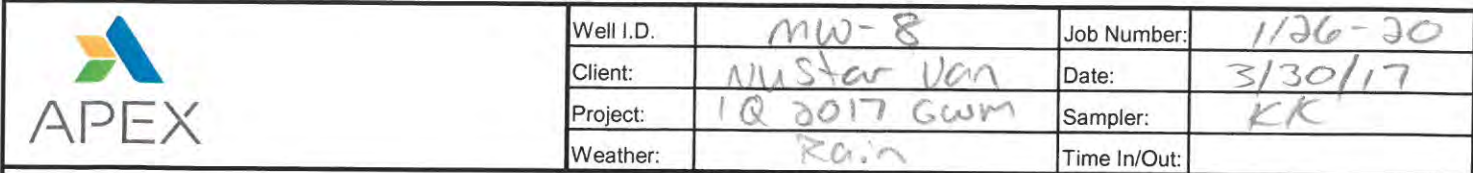 APEX
Well I.D. MW-8 Job Number: 1126-20
Client: NuStar Van Date: 3/30/17
Project: 1Q 2017 GWM Sampler: KK
Weather: Rain Time In/Out: